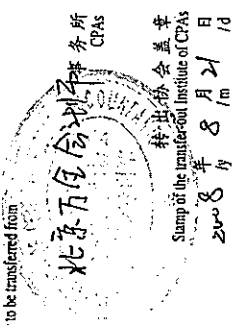 to be transferred from
北京万全会计师事务所
CPAs
转出协会盖章
Stamp of the transfer-out Institute of CPAs
2008 年 8 月 21 日
/y /m /d